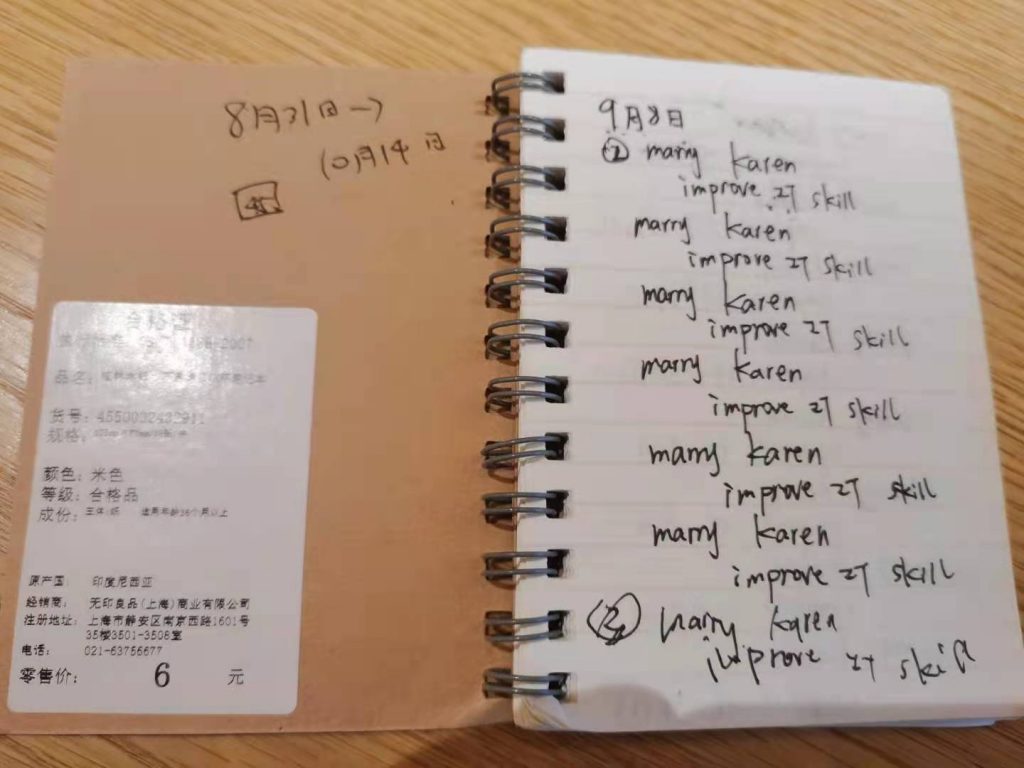 8月31日→
10月14日
合格证
品名:
货号: 4550032432911
规格:
颜色: 米色
等级: 合格品
成份: 主体:纸 适用年龄36个月以上
原产国: 印度尼西亚
经销商: 无印良品(上海)商业有限公司
注册地址: 上海市静安区南京西路1601号
35楼3501-3508室
电话: 021-63756677
零售价: 6 元
9月8日
① marry karen
improve IT skill
marry karen
improve IT skill
marry karen
improve IT skill
marry karen
improve IT skill
marry karen
improve IT skill
marry karen
improve IT skill
② marry karen
improve IT skill